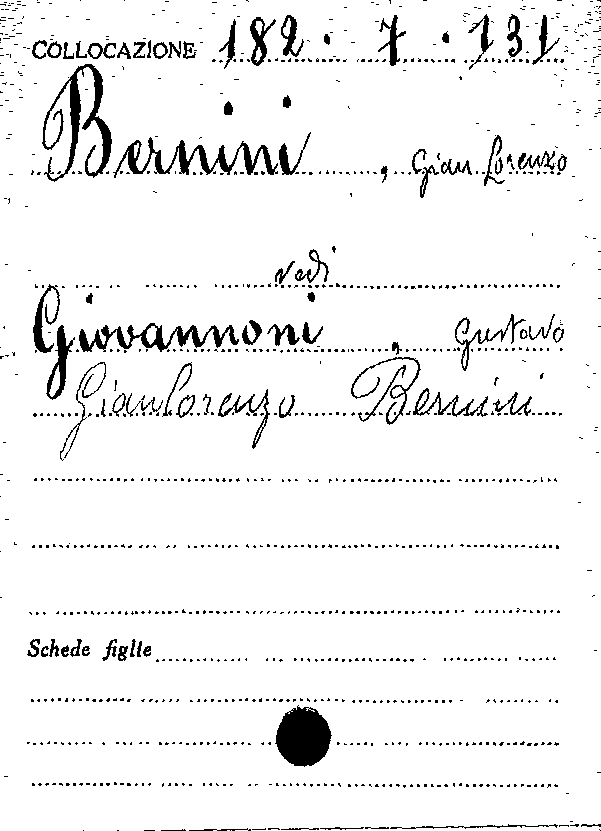 COLLOCAZIONE 182 . 7 . 131
Bernini, Gian Lorenzo
vedi
Giovannoni, Gustavo
Gianlorenzo Bernini
Schede figlie